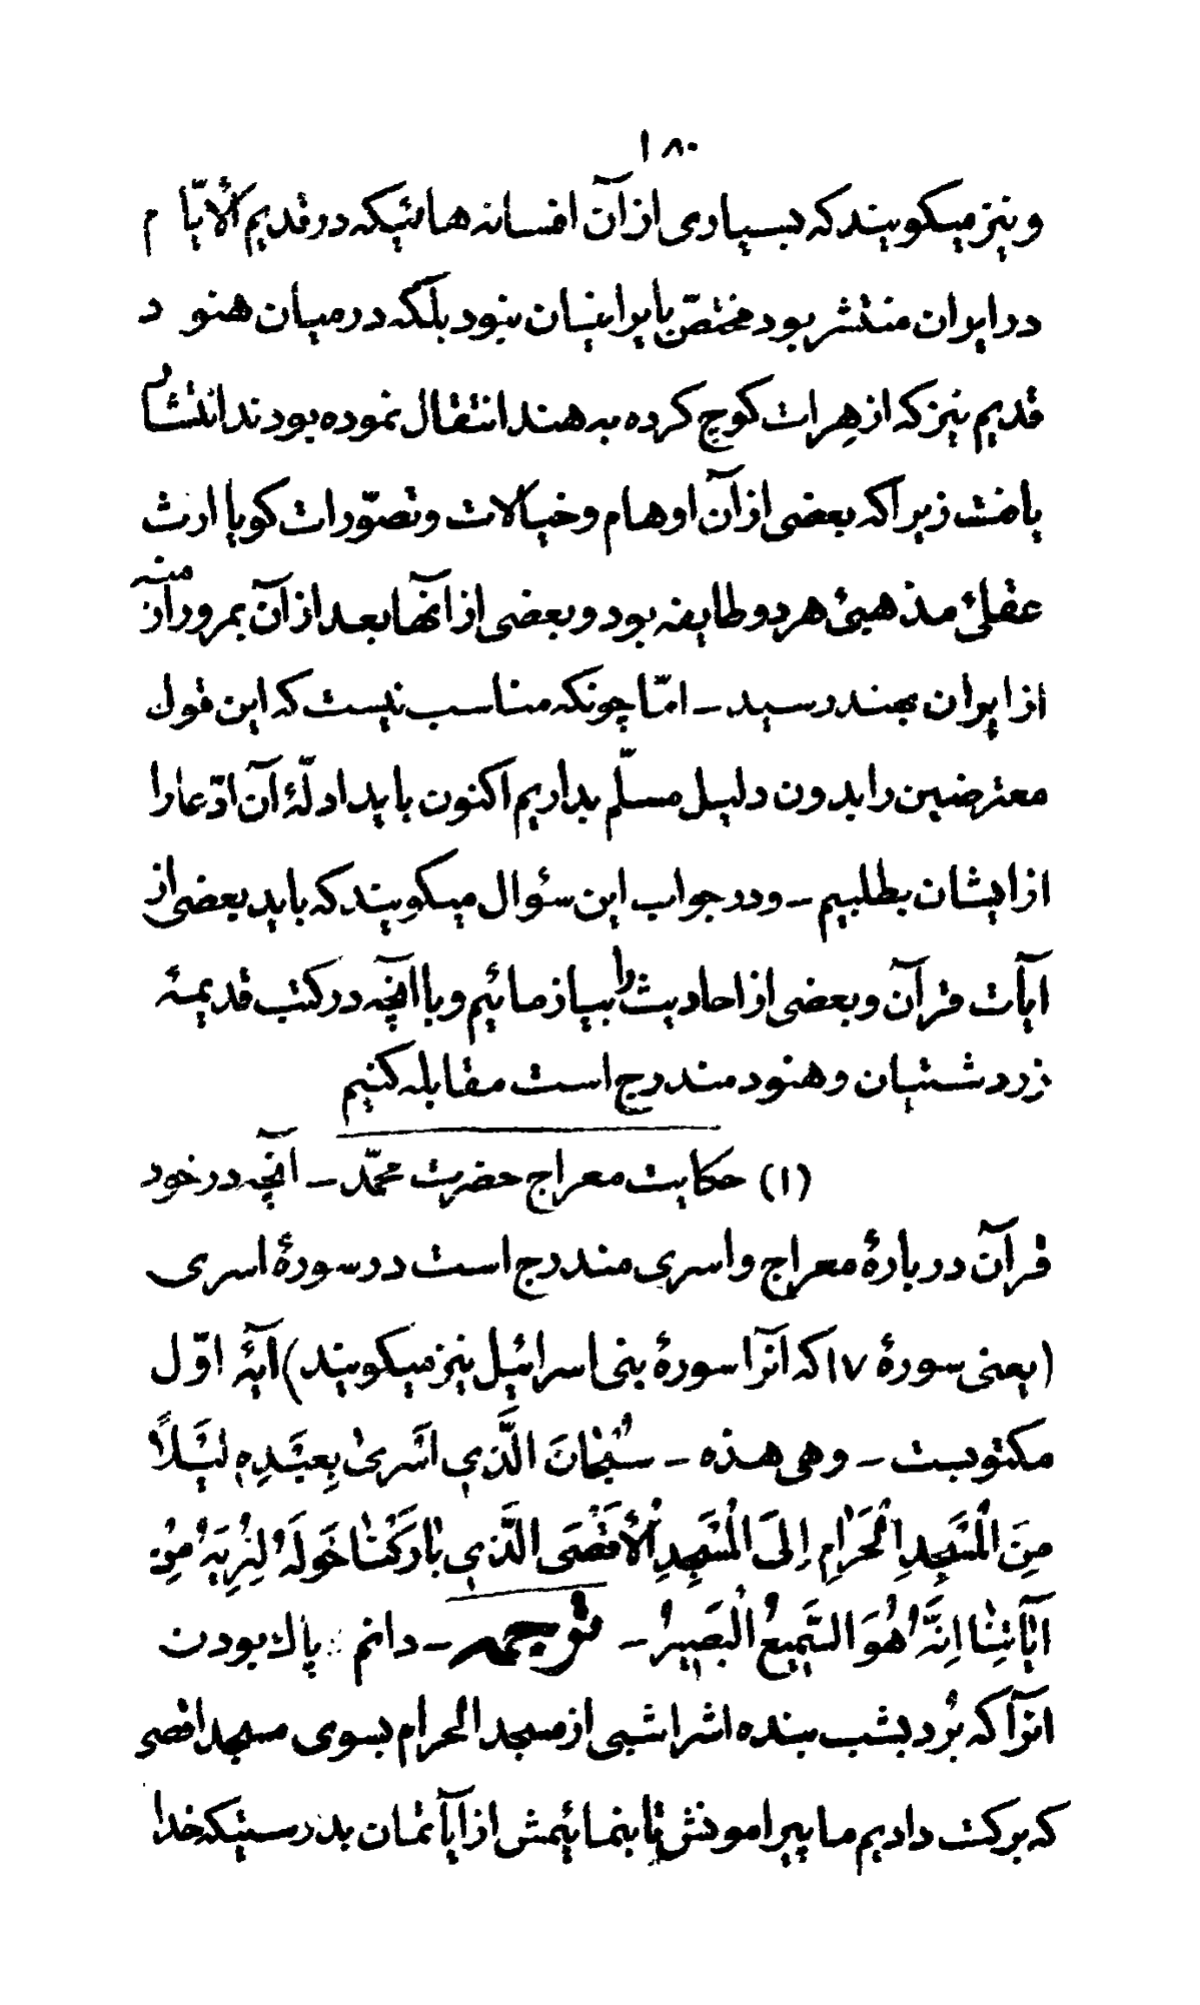 ۱۸۰
و نیز میگویند که بسیاری از آن افسانه هائیکه در قدیم الأیّام
در ایران منتشر بود مختصّ بایرانیان نبود بلکه در میان هنود
قدیم نیز که از هرات کوچ کرده به هند انتقال نموده بودند انتشار
یافت زیرا که بعضی از آن اوهام و خیالات و تصوّرات گویا ارث
عقلیٔ مذهبیٔ هر دو طایفه بود و بعضی از آنها بعد از آن بمرور ازمنه
از ایران بهند رسید ـ امّا چونکه مناسب نیست که این قول
معترضین را بدون دلیل مسلّم بداریم اکنون باید ادلّۀ آن ادّعا را
از ایشان بطلبیم ـ و در جواب این سئوال میگویند که باید بعضی از
آیات قرآن و بعضی از احادیث را بیازمائیم و با آنچه در کتب قدیمۀ
زردشتیان و هنود مندرج است مقابله کنیم
(۱) حکایت معراج حضرت محمّد ـ آنچه در خود
قرآن دربارۀ معراج و اسری مندرج است در سورۀ اسری
(یعنی سورۀ ۱۷ که آنرا سورۀ بنی اسرائیل نیز میگویند) آیۀ اوّل
مکتوبست ـ وهی هذه ـ سُبْحَانَ الَّذِي اَسْرىٰ بِعَبْدِهِ لَيْلًا
مِنَ الْمَسْجِدِ الْحَرَامِ اِلَى الْمَسْجِدِ الْأَقْصَى الَّذِي بَارَكْنَا حَوْلَهُ لِنُرِيَهُ مِنْ
اٰيَاتِنَا اِنَّهُ هُوَ السَّمِيعُ الْبَصِيرُ ـ ترجمه ـ دانم پاك بودن
آنرا که بُرد بشب بنده اش را شبی از مسجد الحرام بسوی مسجد اقصی
که برکت دادیم ما پیرامونش تا بنمائیمش از آیاتمان بدرستیکه خدا